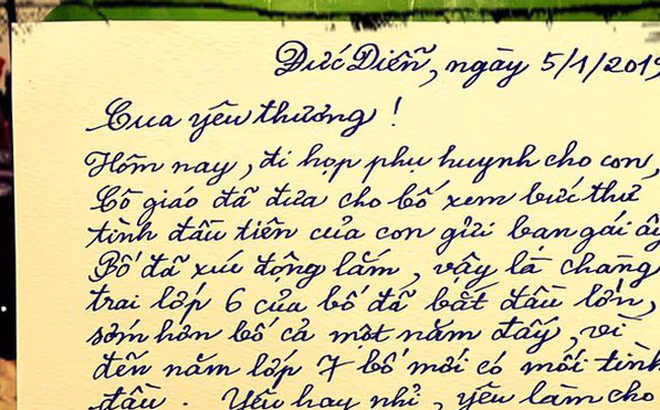 Đức Diễn, ngày 5/1/2019
Cua yêu thương !
Hôm nay, đi họp phụ huynh cho con,
Cô giáo đã đưa cho bố xem bức thư
tình đầu tiên của con gửi bạn gái ấy
Bố đã xúc động lắm, vậy là chàng
trai lớp 6 của bố đã bắt đầu lớn,
sớm hơn bố cả một năm đấy, vì
đến năm lớp 7 bố mới có mối tình
đầu. Yêu hay nhỉ, yêu làm cho